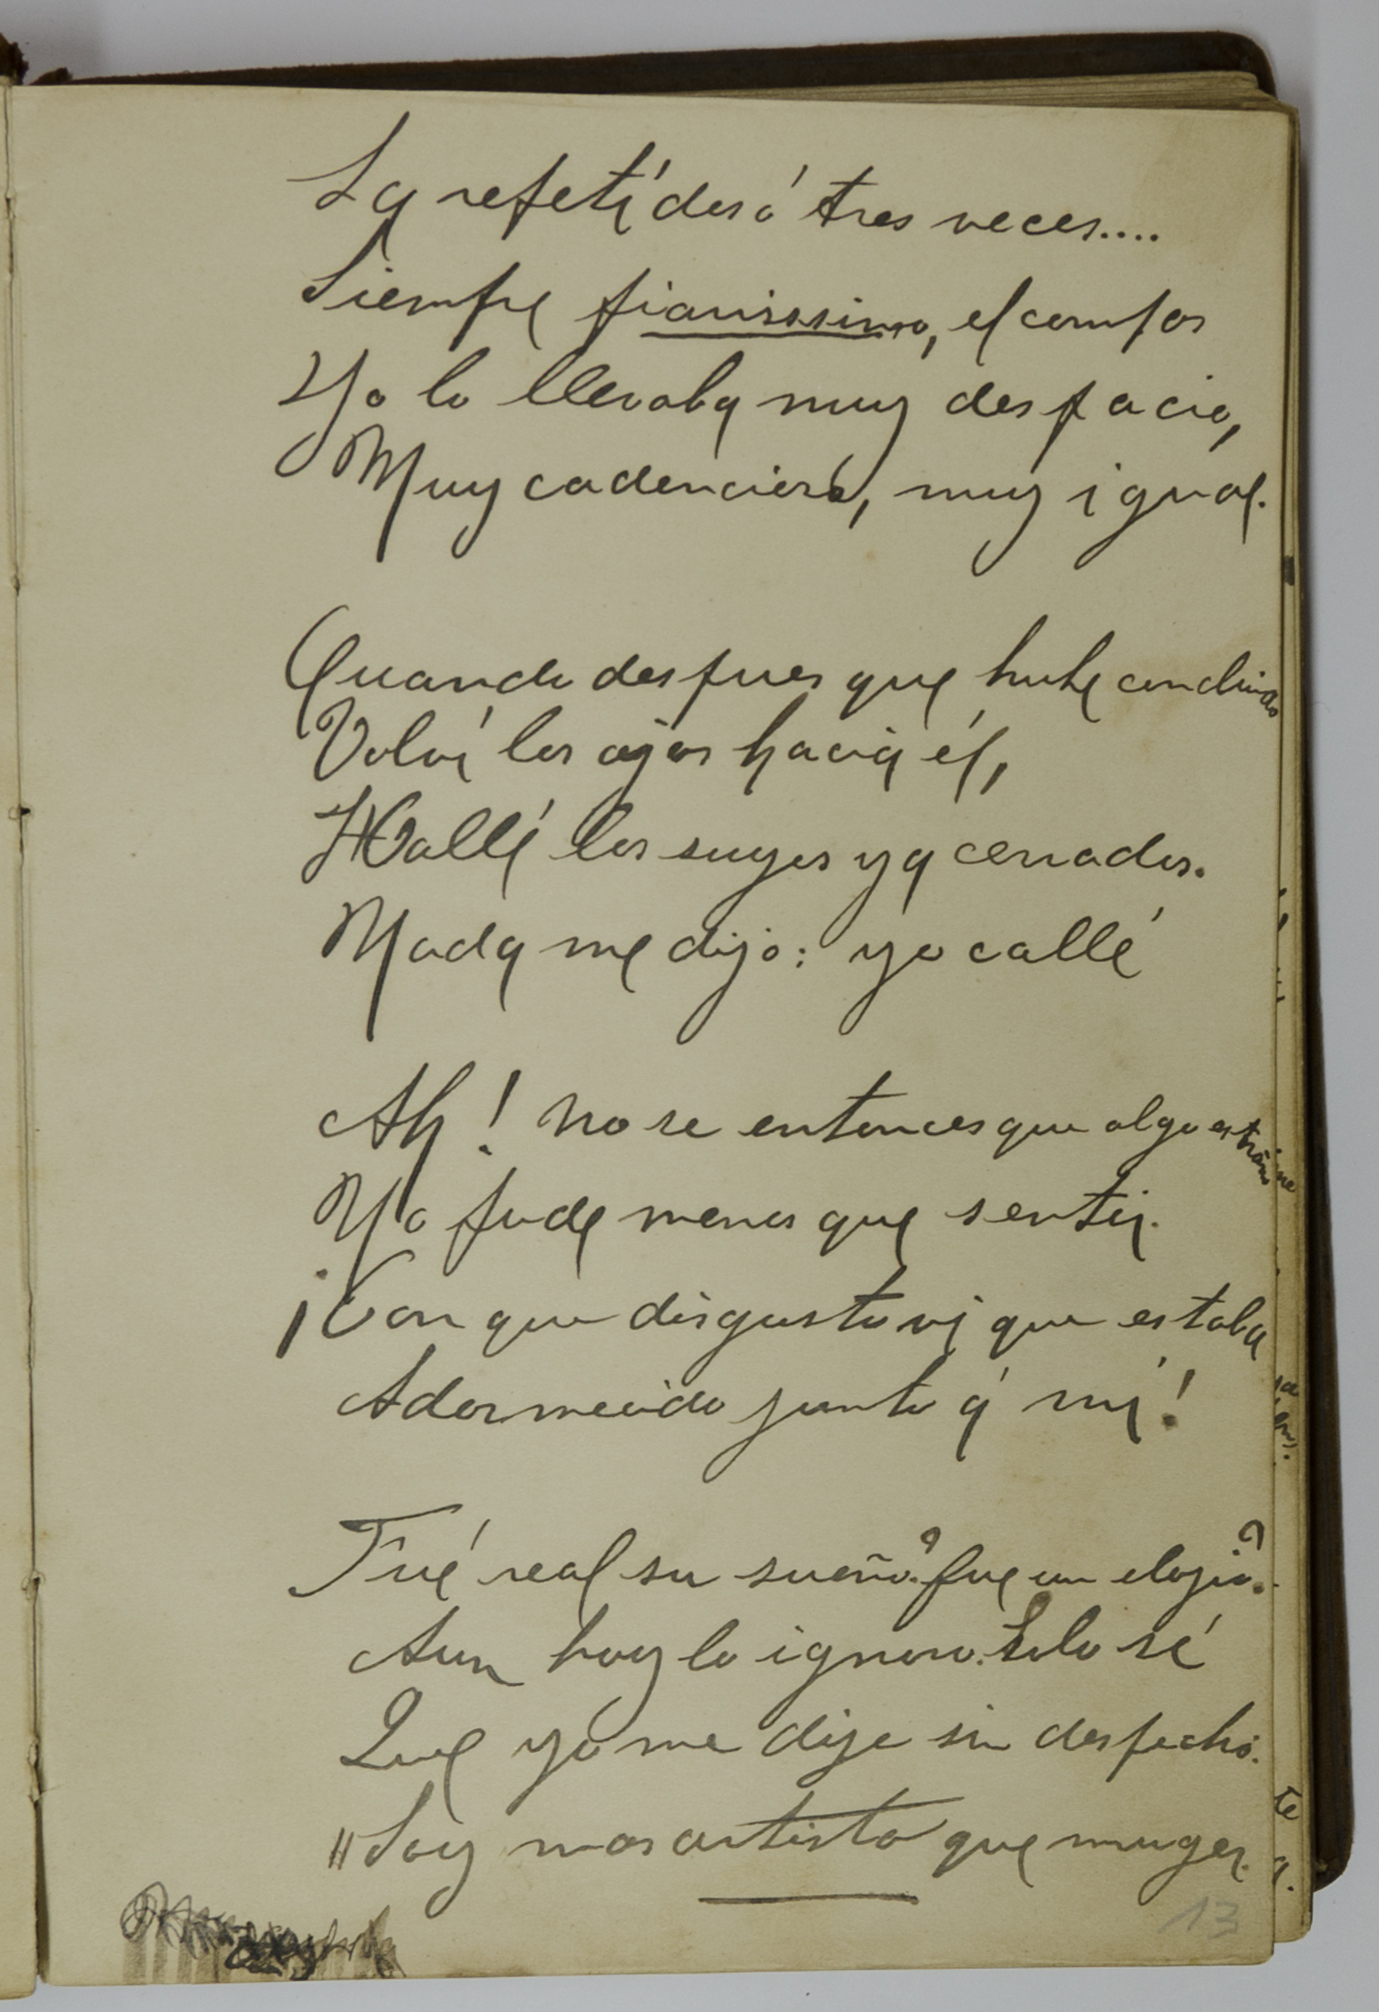 La repetí dos ó tres veces....
Siempre pianissimo, el compas
Yo lo llevaba muy despacio,
Muy cadencioso, muy igual.
Quando despues que hube concluido
Volví los ojos hacia él,
Hallé los suyos ya cerrados.
Nada me dijo: yo callé
Ah! no se entonces que algo estraño
Yo pude menos que sentir.
¡Con que disgusto vi que estaba
Adormecido junto á mí!
Fué real su sueño? fue un elogio?
Aun hoy lo ignoro. Solo sé
Que yo me dije sin despecho.
"Soy mas artista que muger.
13